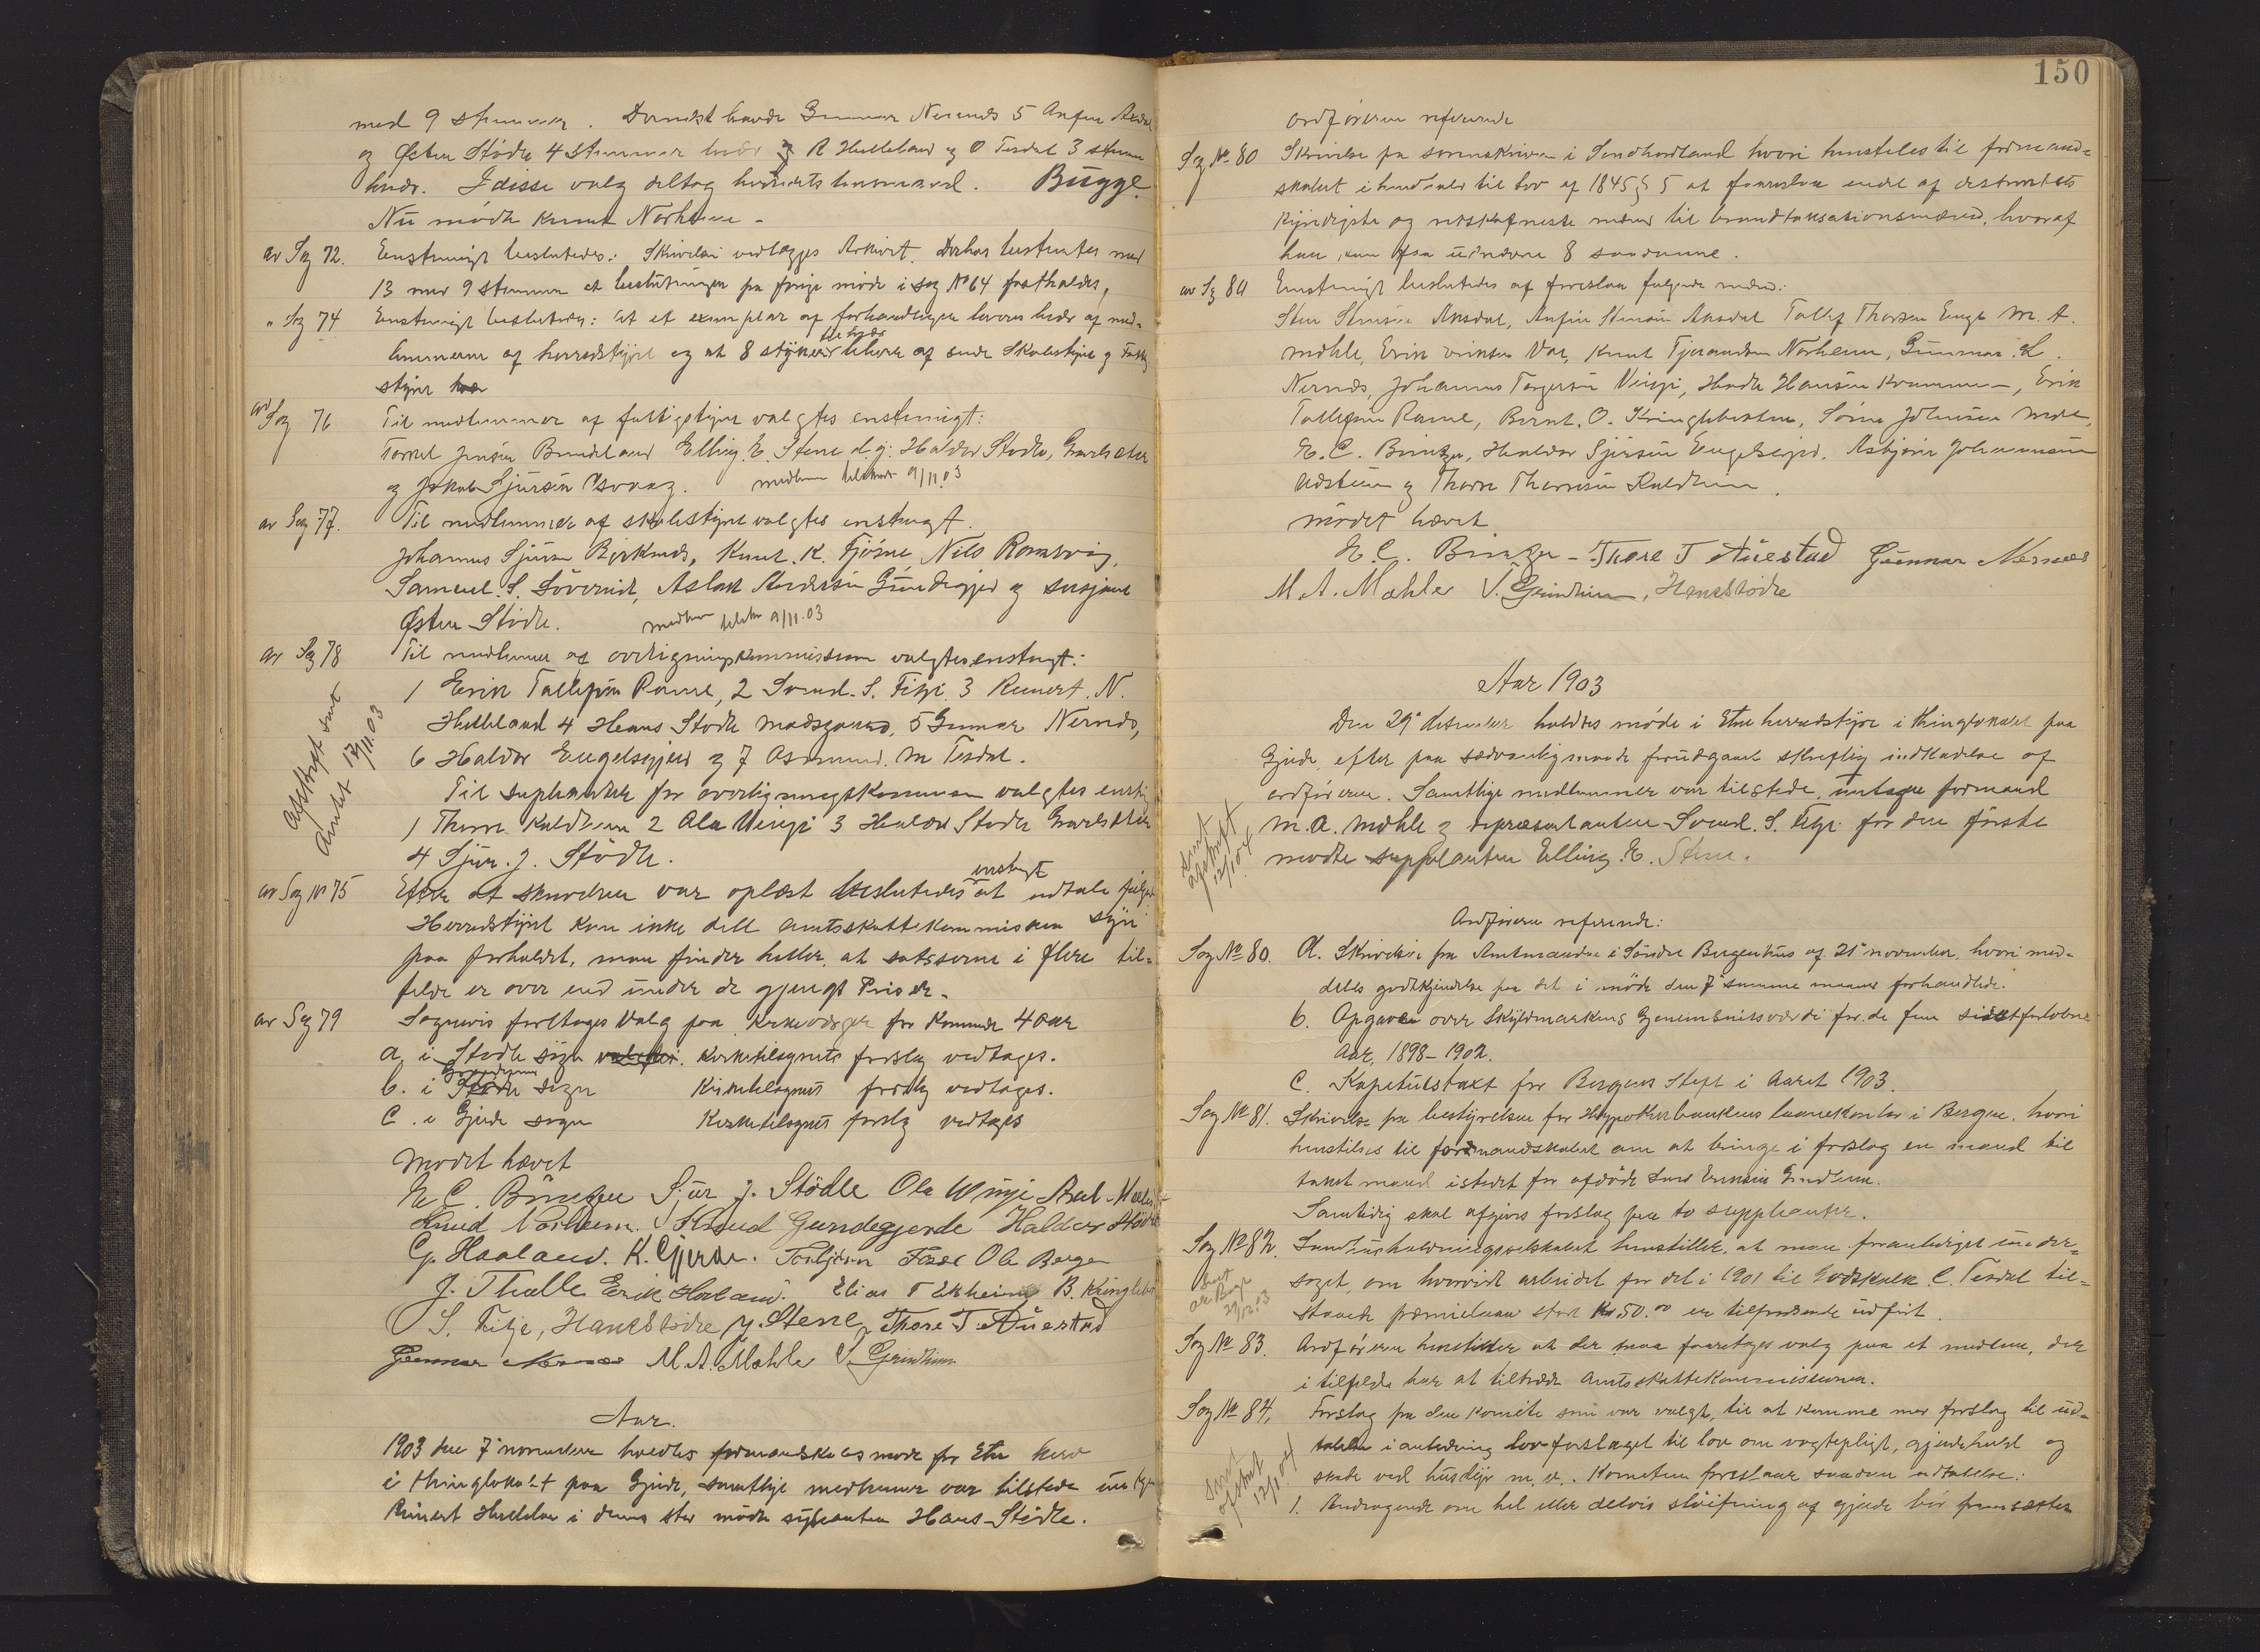 med 9 stemmer. Dernæst havde Gunnar Nernæs 5 Anfin
og Østen Stödle 4 stemmer hver og R Helleland og O Tesdal 3 stemmer
hver. I disse valg deltog herredets lensmand. Bugge.
Nu mödte Knut Norheim -
av Sag 72. Enstemmigt besluttedes: Skrivelsen vedlægges Arkivet. Derhos besluttes med
13 mod 9 stemmer at beslutningen fra forrige möde i sag No 64 fastholdes,
" Sag 74 Enstemmigt besluttedes: At et exemplar af forhandlingene leveres hver af med-
lemmerne af herredstyret og at 8 stykker leveres af hver Skolestyret og Fattig
styret
av Sag 76 Til medlemmer af fattigstyret valgtes enstemigt:
Torkel Jensen Brendeland Elling E. Stene d.y. Haldor Stödle, Grovlsæter
og Jakob Sjursen
av Sag 77. Til medlemmer af skolestyret valgtes enstemigt.
Johannes Sjursen Birknæs, Knut K. Fjösne, Nils Ramsvig,
Samuel S. Lövereid, Aslak Andersen Gundegjerd og
Østen Stödle.
av Sag 78 Til medlemmer af overligningskommissionen valgtes enstemigt:
1 Erik Tollefsen Rame, 2 Svend S. Fitje 3 Reinert N.
Helleland 4 Hans Stödle 5 Gunnar Nernæs,
6 Haldor Engelsgjerd og 7 Asmund M Tesdal.
Til supleanter for overligningskommissionen valgtes enstemigt
1 Thore Kaldheim 2 Ola Vinje 3 Haldor Stödle Grovlsæter
4 Sjur J. Stödle.
Afskrift sendt
Amtet 12/11.03
av Sag No 75 Efter at skrivelsen var oplæst besluttedes enstemigt at udtale fölgende
Herredstyret kan ikke dele amtsskattekommissionens syn
paa forholdet, man finder heller, at satserne i flere til-
fælde er over end under de gjengse Priser.
av Sag 79 Sognevis foretages Valg paa Kirkeverger for Kommende 4 aar
a, i Stödle sogn Kirketilsynets forslag vedtages.
b. i Grindheim sogn Kirketilsynets forslag vedtages.
C. i Gjerde sogn Kirketilsynets forslag vedtages
Mödet hævet
E C. Brintzer Sjur J. Stödle Ola Winje
Knud Norheim. Knud Gundegjerde Haldor Stödle
G. Haaland. K. Gjerde. Torbjörn Ola Berge
J. Thalle Erik Haaland. Elias T Ekheim B. Kringlebotn
S. Fitje, Hans Stödle J. Stene Thore T. Auestad
Gunnar Nernæs M. A. Mæhle S. Grindheim
Aar.
1903 den 7 november holdtes formandskabsmöde for Etne herred
i thinglokalet paa Gjerde, samtlige medlemmer var tilstede undtagen
Reinert Helleland i dennes sted mödte supleanten Hans Stödle.
150
Ordföreren refererede
Sag No 80 Skrivelse fra sorenskriveren i Söndhordland hvori henstilles til formand-
skabet i henhold til lov af 1845 § 5 at foreslaa endel af distriktets
kyndigste og retskafneste mænd til brandtaksationsmænd, hvoraf
han kan udnævne 8 saadanne.
av Sag 80 Enstemigt besluttedes at foreslaa følgende mænd:
Sten Stensen Aksdal, Anfin Stensen Aksdal Tollef Thorsen Enge M. A.
Mæhle, Erik Knut Tjerandsen Norheim, Gunnar L.
Nernæs, Johannes Torgersen Vinje, Hans Hansen Erik
Tollefsen Rame, Bernt O. Kringlebotn, Sören Johnsen
E. C. Brintzer, Haldor Sjursen Engelsgjerd, Asbjörn Johannessen
og Thore Thoresen Kaldheim.
mödet hævet
E. C. Brintzer - Thore T Auestad Gunnar Nernæs
M. A. Mæhle S. Grindheim, Hans Stödle
Aar 1903
Den 29 december holdtes möde i Etne herredstyre i thinglokalet paa
Gjerde, efter paa sedvanlig maade forudgaaet skriftlig indkaldelse af
ordföreren. Samtlige medlemmer var tilstede, undtagen formand
M. A. Mæhle og repræsentanten Svend S. Fitje. for den förste
mödte supplanten Elling E. Stene.
sendt
afskrift
12/1.04
Ordföreren refererede:
Sag No 80. A. Skrivelse fra Amtmanden i Söndre Bergenhus af 21 november, hvori med-
deles godkjendelse paa det i möde den 7 samme maaned forhandlede.
b. Opgaver over Skyldmarkens Gjenemsnitsværdi for de fem sidst forlöbne
Aar, 1898-1902.
C. Kapitelstakt for Bergens Stift i Aaret 1903.
Sag No 81. Skrivelse fra bestyrelsen for Hypothekbankens laanekontor i Bergen, hvori
henstilles til formandskabet om at bringe i forslag en mand til
takstmand istedet for afdöde Grindheim.
Samtidig skal afgives forslag paa to suppleanter.
Sag No 82. Landhusholdningsselskabet henstiller, at man foranlediget under-
söget, om hvorvidt arbeidet for det i 1901 til Godskalk C. Tesdal til-
staaede præmielaan stort Kr. 50.00 er tilfredsende udfört.
sendt
Ole Berge
29/12.03
Sag No 83. Ordföreren henstiller at der maa foretages valg paa et medlem, der
i tilfælde har at tiltræde Amtsskattekommissionen.
Sag No 84, Forslag fra den komite som var valgt, til at komme med forslag til ud-
talelse i anledning lovforslaget til lov om vogtepligt, gjerdehold og
skade ved husdyr m. v. Komiteen foreslaar saadan udtalelse:
1. Andragende om hel eller delvis slöifning af gjerde bör fremsættes
sendt
afskrift
12/1.04